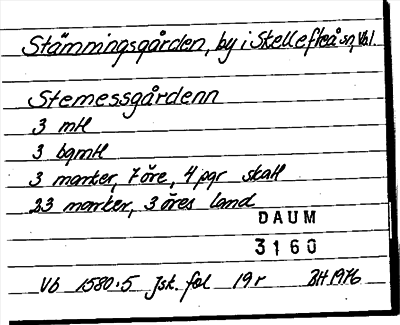 Stämmingsgården, by i Skellefteå sn, Vbl.
Stemessgårdenn
3 mtl
3 bgmtl
3 marker, 7 öre, 4 pgr skatt
23 marker, 3 öres land
DAUM
3160
Vb 1580:5 Jsk. fol 19r BH 1976